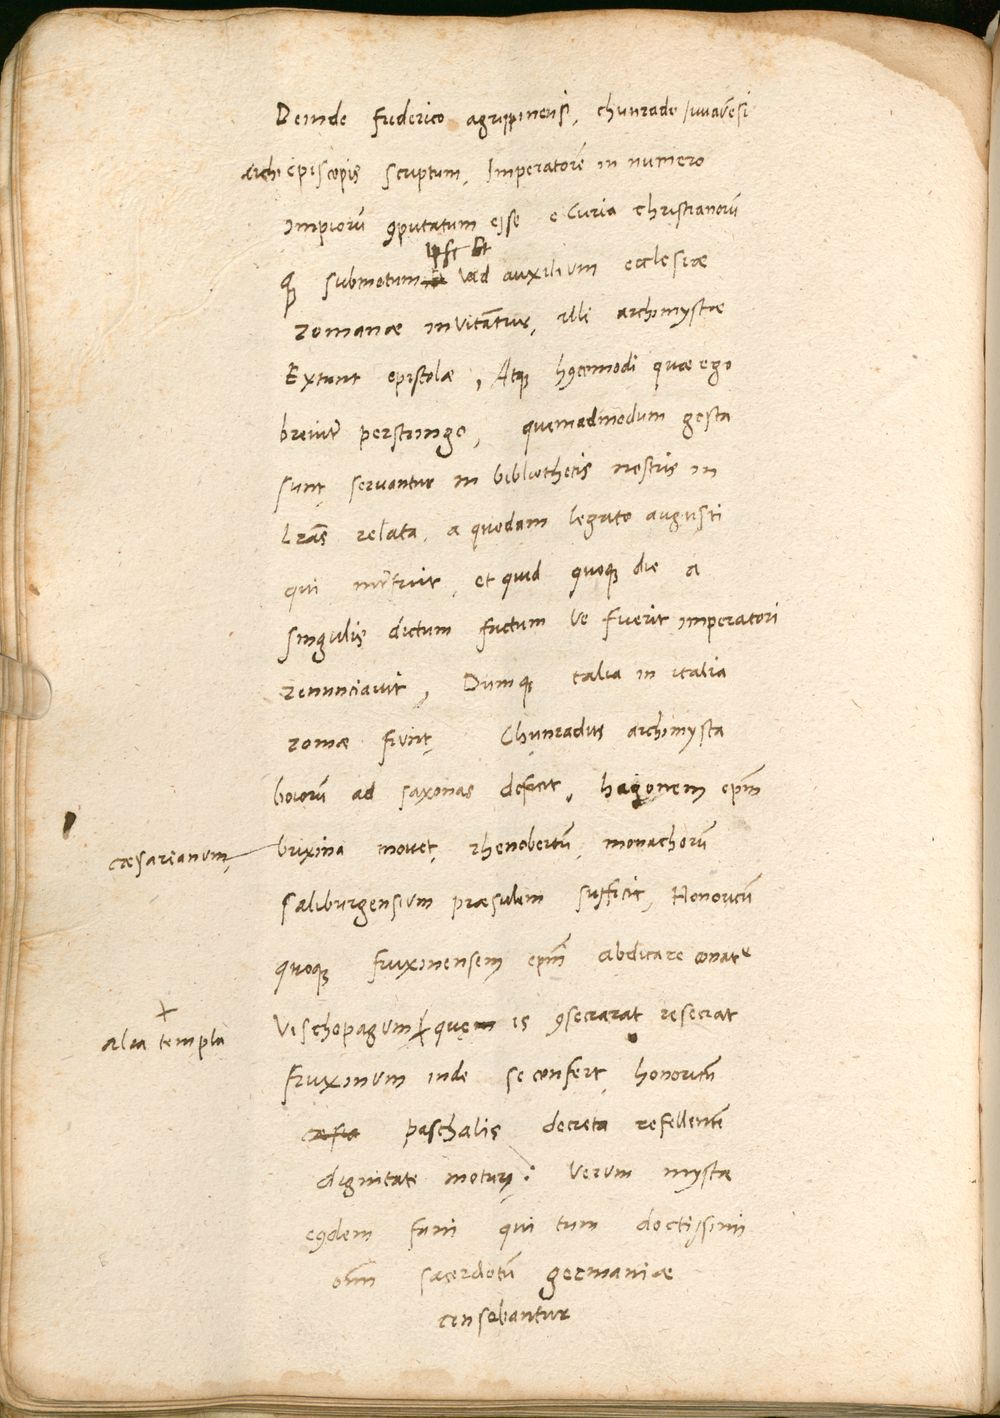 Deinde Frederico agrippinensi, chunrado Iuvavēsi
archi episcopis scriptum, Imperatorē in numero
impiorū ꝯputatum esse e Curia christianorū
ꝙ submotum
ad auxilium ecclesiæ
romanæ invitātur, illi archimystæ
Extant epistolæ, Atqꝫ hꝰcemodi quæ ego
breviter perstringo, quemadmodum gesta
sunt servantur in bibliothecis nostris in
lrās relata, a quodam legato augusti
qui interfuit, et quid quoqꝫ die a
singulis dictum factum ve fuerit imperatori
renunciavit, Dumqꝫ talia in italia
romæ fiunt, Chunradus archimysta
boiorū ad saxonas deficit, hugonem epm̄
cæsarianum
brixina movet, rhenobertū, monachorū
saliburgensium præsulem sufficit, Honoricū
quoqꝫ fruxinensem epm̄ abdicare conatꝰ
alia templa
Vischopagum quem is ꝯsecrarat resecrat
fruxinum inde se confert, honoricū
paschalis decreta refellentē
dignitate moturꝰ: Verum mystæ
eꝰdem fani qui tum doctissimi
oīm sacerdotū germaniæ
censebantur